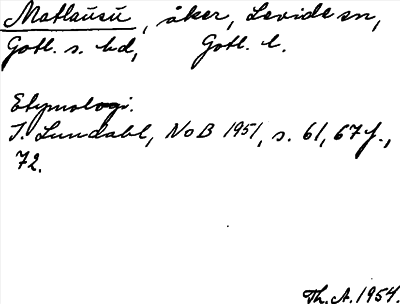 Matlausu, åker, Levide sn,
Gotl. s. hd, Gotl. l.
Etymologi.
I. Lundahl, NoB 1951, s. 61, 67 f.,
72.
Th. A. 1954.